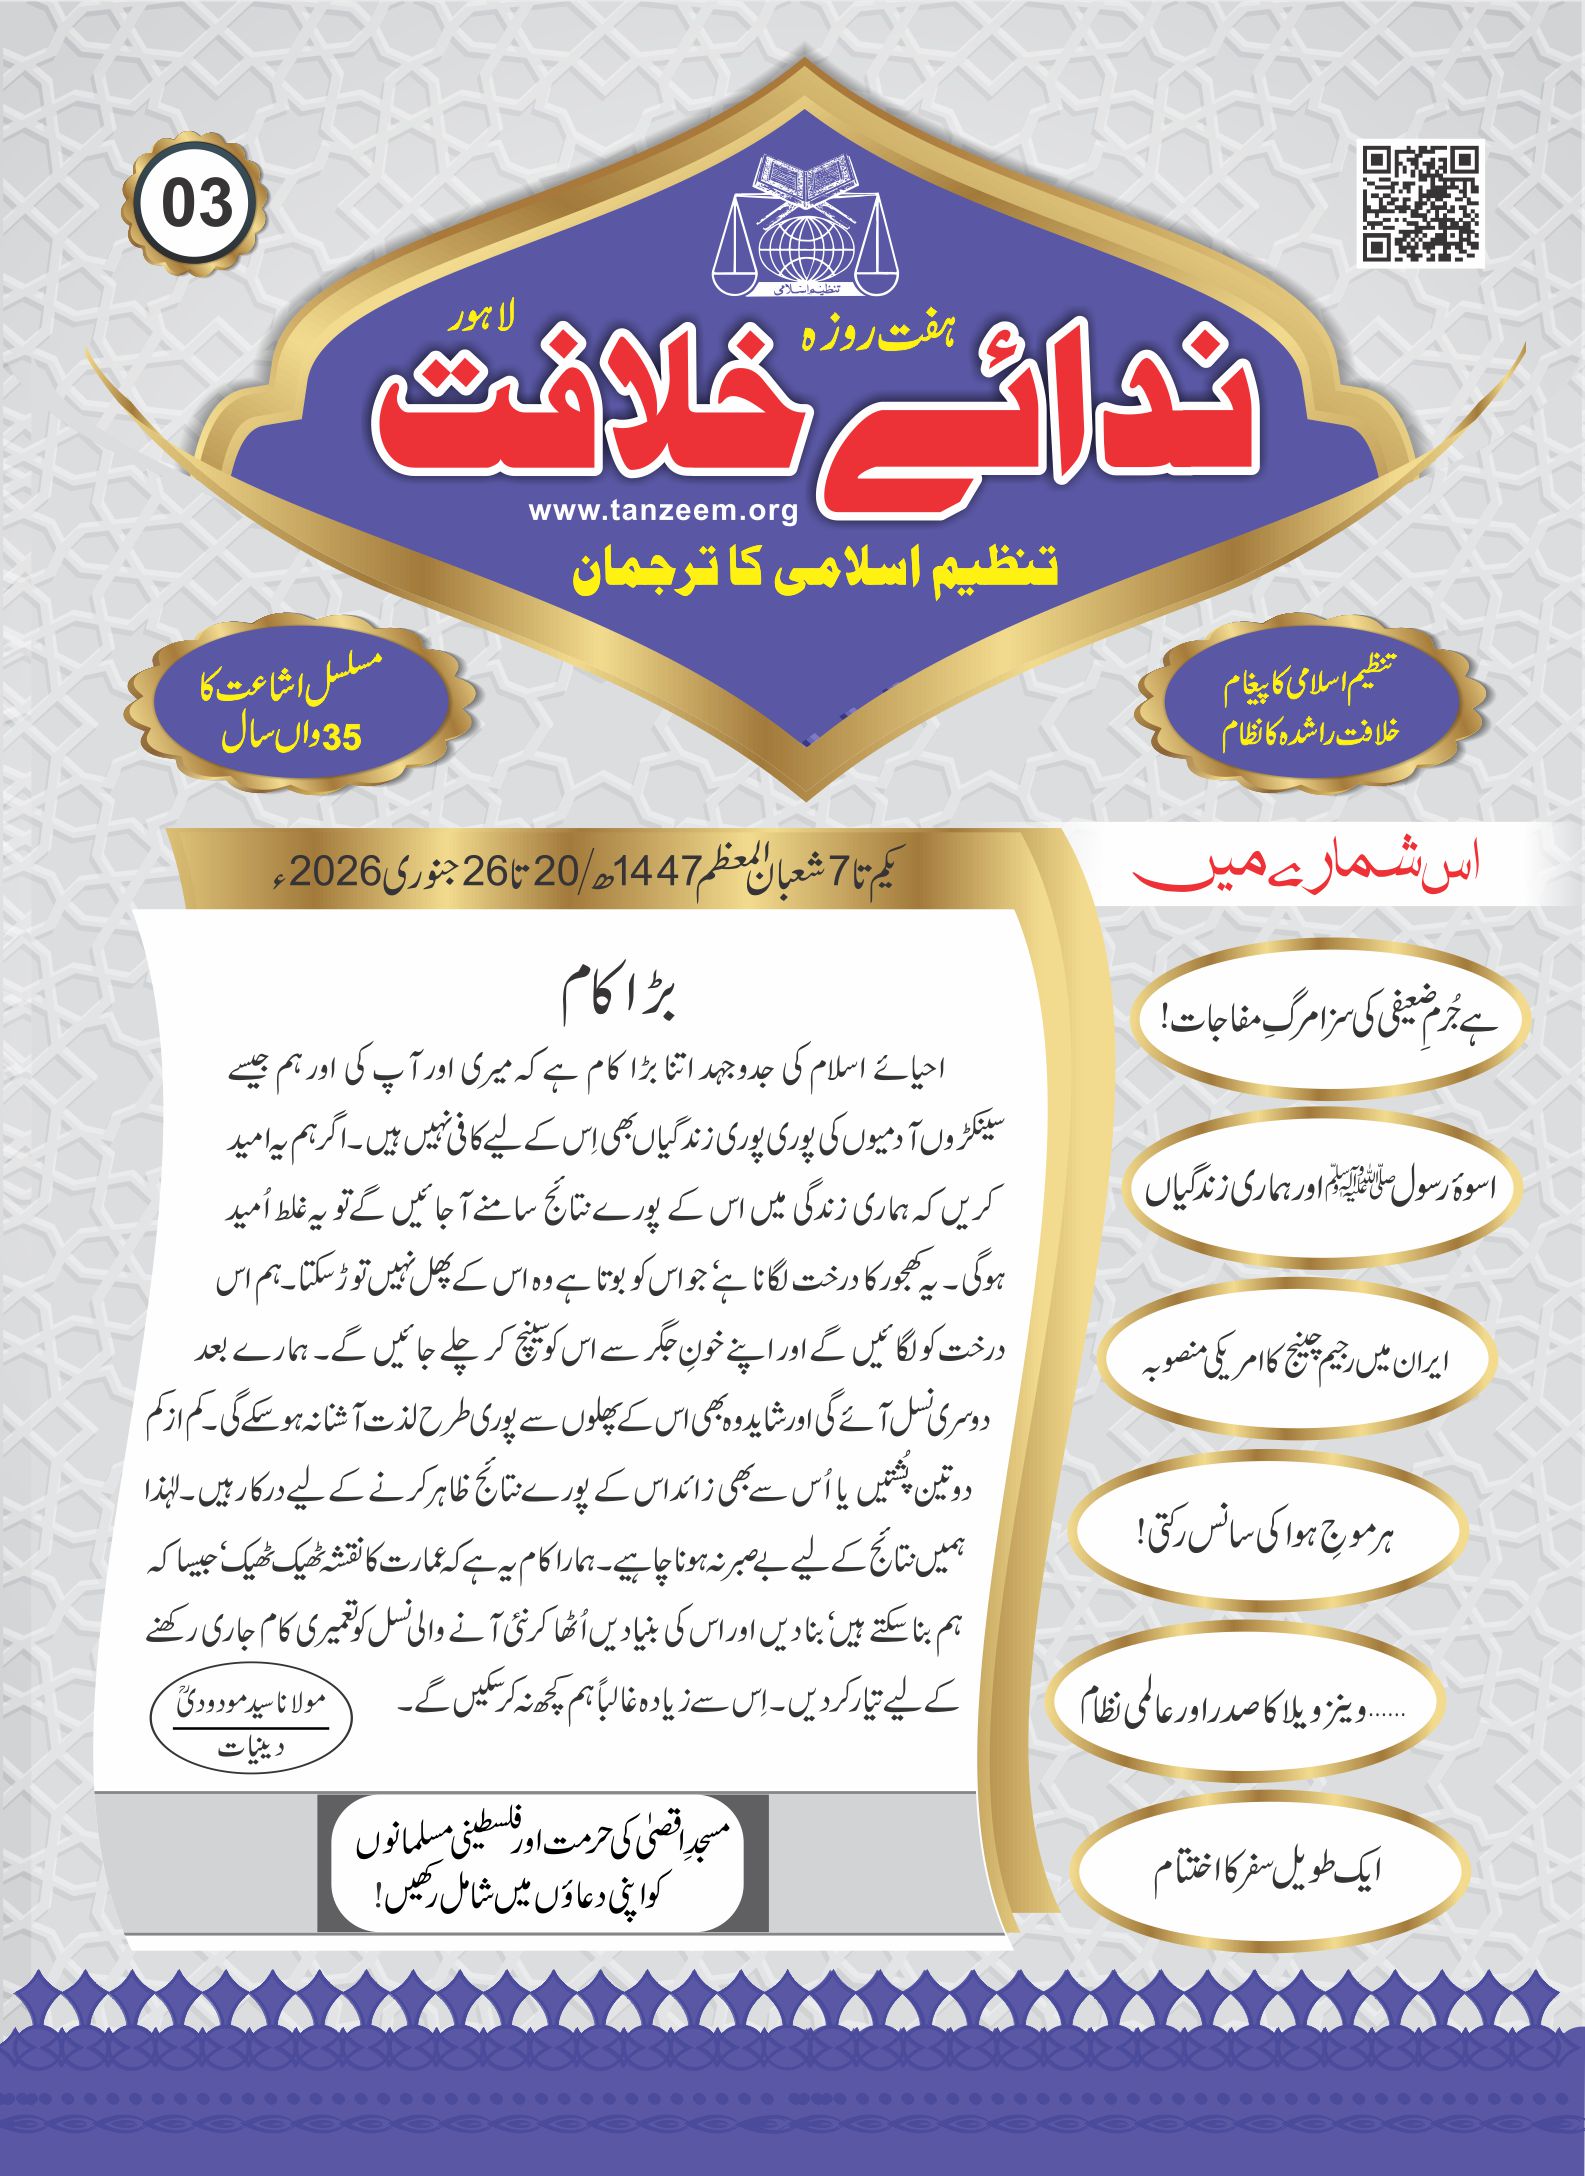 03
تنظیم اسلامی
ہفت روزہ
لاہور
ندائے خلافت
www.tanzeem.org
تنظیم اسلامی کا ترجمان
تنظیم اسلامی کا پیغام
خلافت راشدہ کا نظام
مسلسل اشاعت کا
35 واں سال
یکم تا 7 شعبان المعظم 1447ھ/20 تا 26 جنوری 2026ء
بڑا کام
احیائے اسلام کی جدوجہد اتنا بڑا کام ہے کہ میری اور آپ کی اور ہم جیسے
سینکڑوں آدمیوں کی پوری پوری زندگیاں بھی اِس کے لیے کافی نہیں ہیں۔ اگر ہم یہ امید
کریں کہ ہماری زندگی میں اس کے پورے نتائج سامنے آجائیں گے تو یہ غلط اُمید
ہوگی۔ یہ کھجور کا درخت لگانا ہے‘ جو اس کو بوتا ہے وہ اس کے پھل نہیں توڑ سکتا۔ ہم اس
درخت کو لگائیں گے اور اپنے خونِ جگر سے اس کو سینچ کر چلے جائیں گے۔ ہمارے بعد
دوسری نسل آئے گی اور شاید وہ بھی اس کے پھلوں سے پوری طرح لذت آشنا نہ ہو سکے گی۔ کم از کم
دو تین پُشتیں یا اُس سے بھی زائد اس کے پورے نتائج ظاہر کرنے کے لیے درکار ہیں۔ لہٰذا
ہمیں نتائج کے لیے بے صبر نہ ہونا چاہیے۔ ہمارا کام یہ ہے کہ عمارت کا نقشہ ٹھیک ٹھیک‘ جیسا کہ
ہم بنا سکتے ہیں‘ بنا دیں اور اس کی بنیادیں اُٹھا کر نئی آنے والی نسل کو تعمیری کام جاری رکھنے
کے لیے تیار کر دیں۔ اِس سے زیادہ غالباً ہم کچھ نہ کر سکیں گے۔
مولانا سید مودودیؒ
دینیات
مسجدِ اقصیٰ کی حرمت اور فلسطینی مسلمانوں
کو اپنی دعاؤں میں شامل رکھیں!
اس شمارے میں
ہے جُرمِ ضعیفی کی سزا مرگِ مفاجات!
اسوۂ رسول ﷺ اور ہماری زندگیاں
ایران میں رجیم چینج کا امریکی منصوبہ
ہر موجِ ہوا کی سانس رکتی!
......وینزویلا کا صدر اور عالمی نظام
ایک طویل سفر کا اختتام